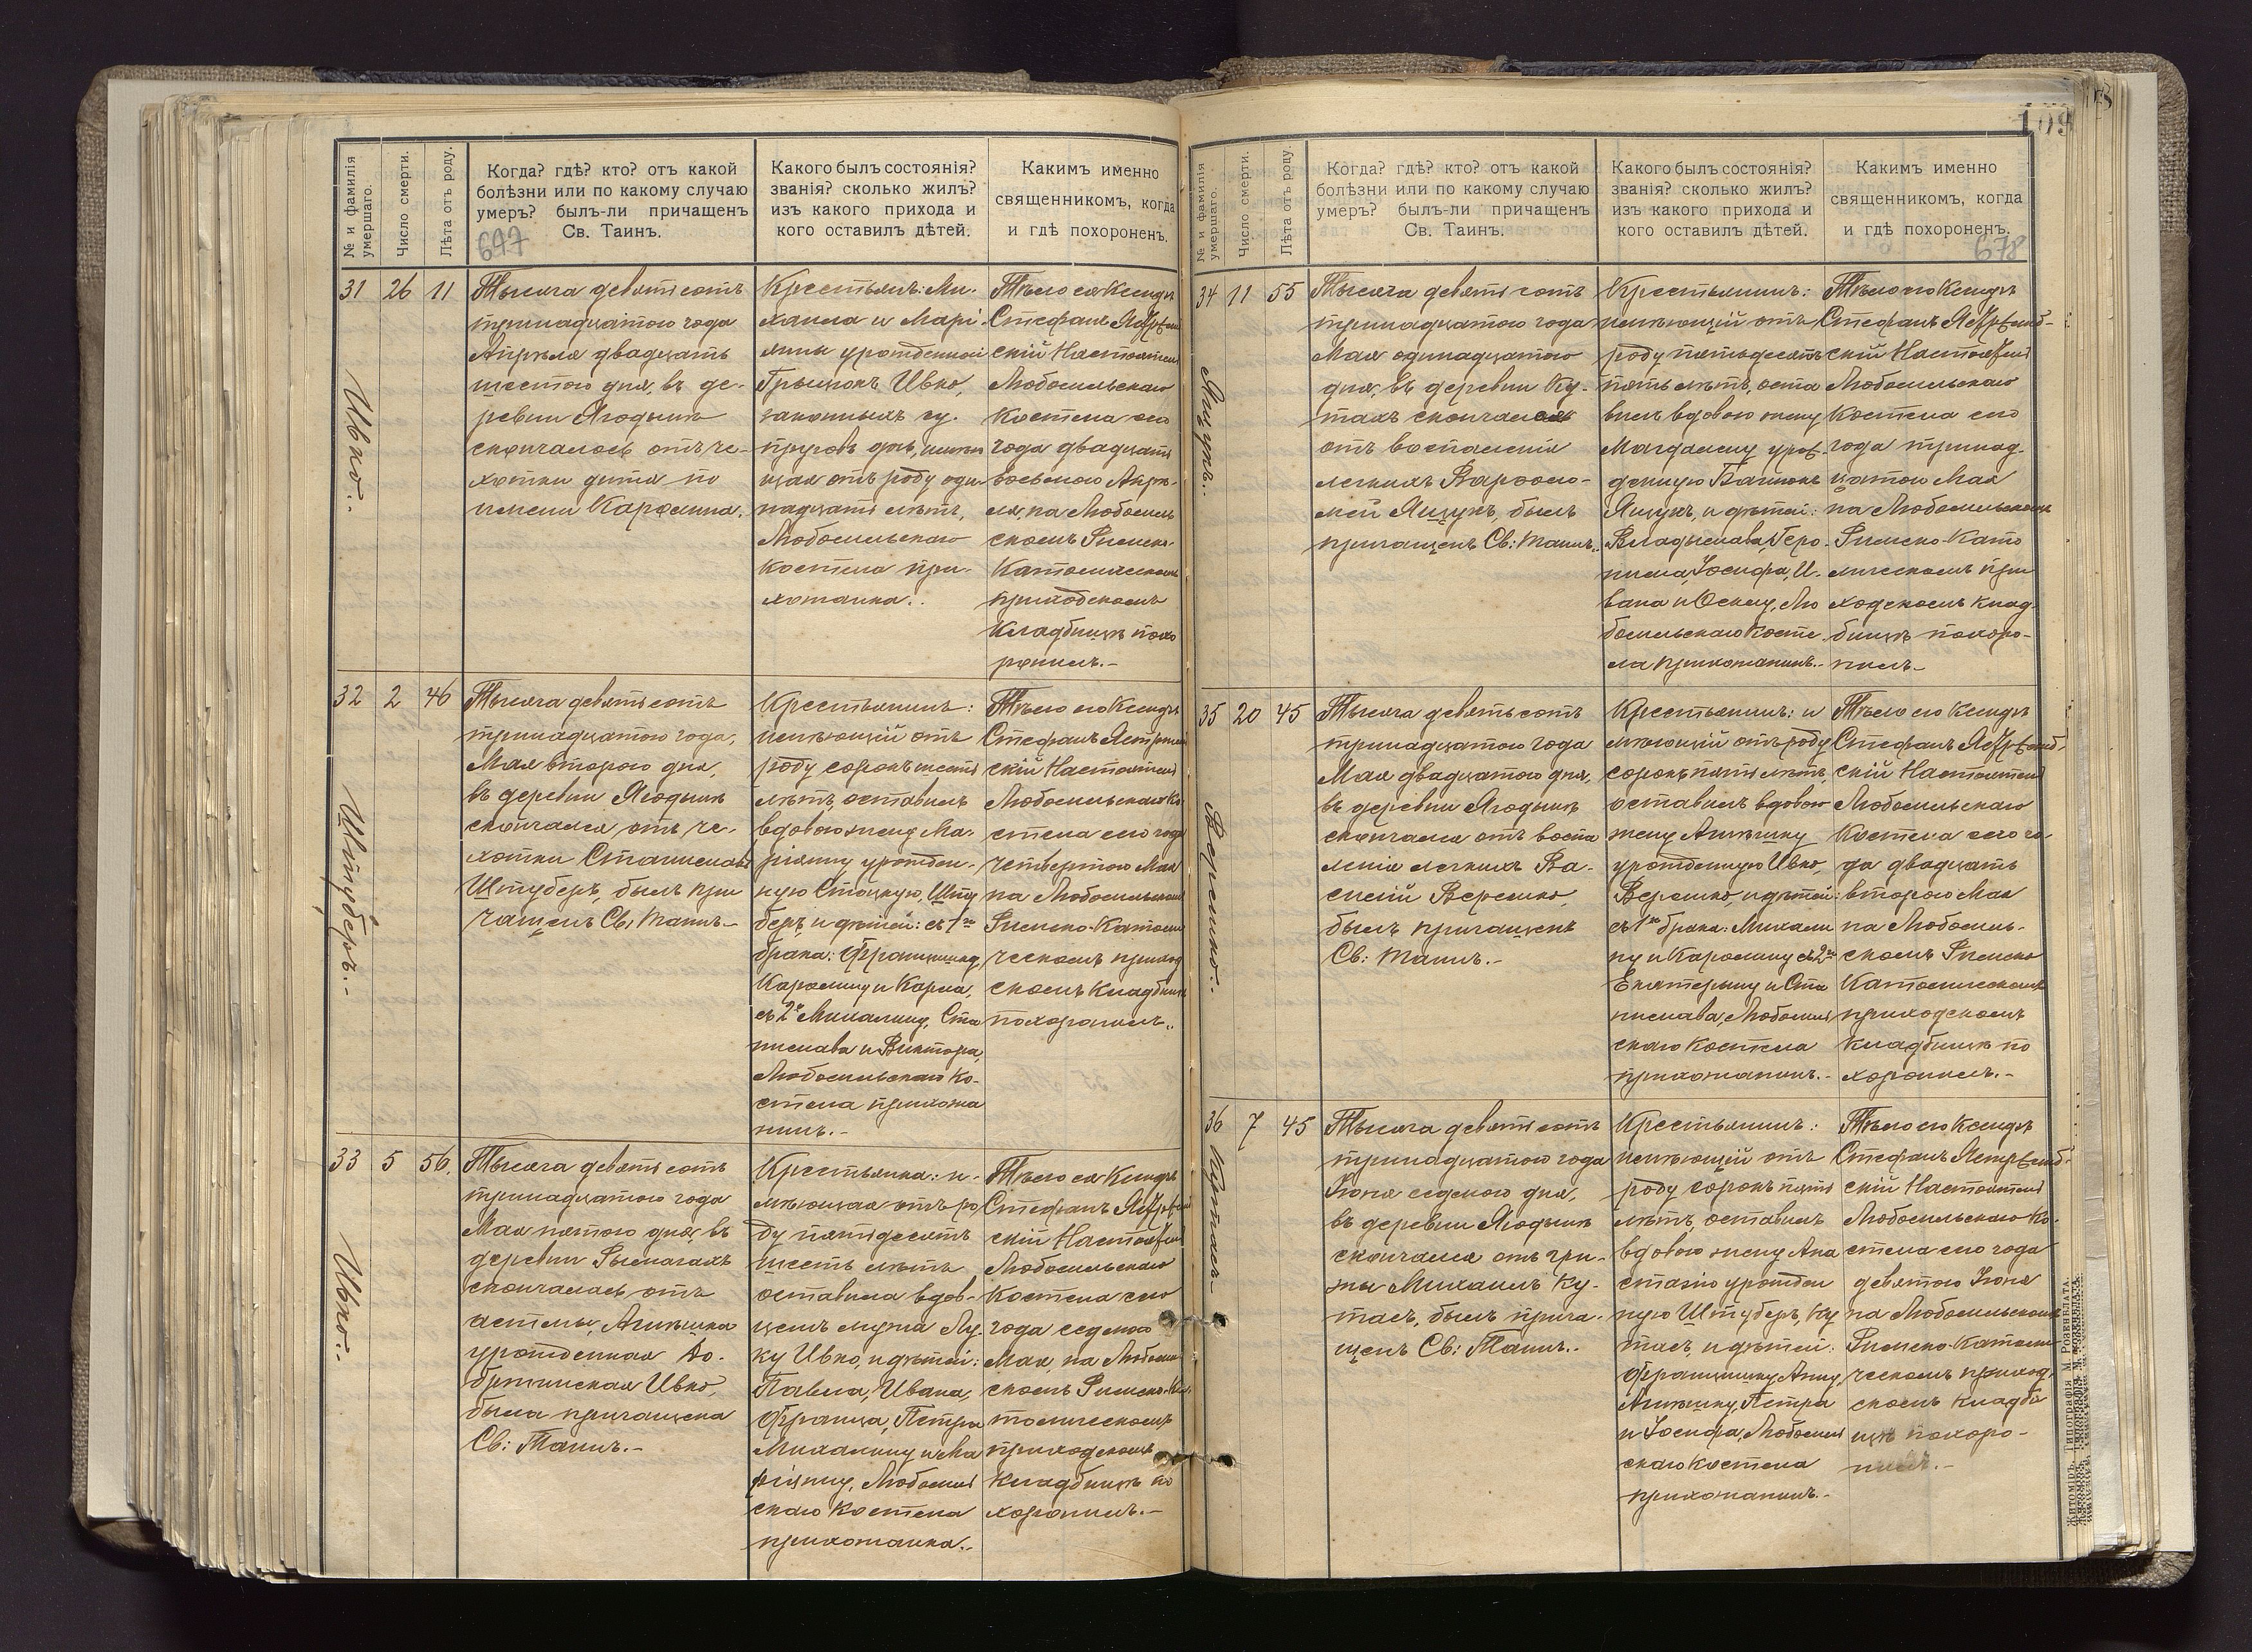 109
№ и фамилія
умершаго.
Число смерти.
Лѣта отъ роду.
Когда? гдѣ? кто? отъ какой
болѣзни или по какому случаю
умеръ? былъ-ли причащенъ
Св. Таинъ.
647
Какого былъ состоянія?
званія? сколько жилъ?
изъ какого прихода и
кого оставилъ дѣтей.
Каким именно
священникомъ, когда
и гдѣ похороненъ.
31
Ивко.
26
11
Тысяча девятьсотъ
тринадцатого года
Апрѣля двадцать
шестого дня, въ де-
ревнѣ Ягодынѣ
скончалось отъ че-
хотки дитя по
имени Каролина.
Крестьянъ: Ми-
хаила и Марі-
анны урожденной
Грыцюкъ Ивко,
законныхъ су-
пруговъ дочь, имѣю
щая отъ роду оди-
надцать лѣтъ,
Любомльскаго
костела при-
хожанка.
Тѣло ея Ксендзъ
Стефанъ Ястржемб
скій Настоятель
Любомльскаго
Костела сего
года двадцать
восьмого Апрѣ-
ля, на Любомль
скомъ Римско-
Католическомъ
приходскомъ
Кладбищѣ похо
ронилъ.-
32
Штуберъ.-
2
46
Тысяча девятьсотъ
тринадцатого года,
Мая второго дня,
въ деревнѣ Ягодынѣ
скончался отъ че-
хотки Станиславъ
Штуберъ, былъ при
чащенъ Св: Таинъ.-
Крестьянинъ:
имѣющій отъ
роду сорокъ шесть
лѣтъ, оставилъ
вдовою жену Ма-
ріанну урожден-
ную Стоцкую, Шту
беръ, и дѣтей: съ 1го
брака: Францишку,
Каролину и Карла,
съ 2го Михалину, Ста
нислава и Виктора,
Любомльскаго Ко-
стела прихожа
нинъ.-
Тѣло его Ксендзъ
Стефанъ Ястржемб
скій Настоятель
Любомльскаго Ко
стела сего года
четвертого Мая
на Любомльскомъ
Римско-Католи
ческомъ приход
скомъ Кладбищѣ
похоронилъ..
33
Ивко.-
5
56.
Тысяча девятьсотъ
тринадцатого года
Мая пятого дня, въ
деревнѣ Рымачахъ
скончалась отъ
астмы, Агнѣшка
урожденная До-
бртинская Ивко,
была причащена
Св: Таинъ.-
Крестьянка: и-
мѣющая отъ ро
ду пятьдесятъ
шесть лѣтъ
оставила вдов-
цемъ мужа Лу
ку Ивко, и дѣтей:
Павла, Ивана,
Франца, Петра
Михалину и Ма
ріянну, Любомль
скаго костела
прихожанка..
Тѣло ея Ксендзъ
Стефанъ Ястржемб
скій Настоятель
Любомльскаго
Костела сего
года седьмого
Мая, на Любомль
скомъ Римско-Ка
толическомъ
приходскомъ
Кладбищѣ по
хоронилъ.-
№ и фамилія
умершаго.
Число смерти.
Лѣта отъ роду.
Когда? гдѣ? кто? отъ какой
болѣзни или по какому случаю
умеръ? былъ-ли причащенъ
Св. Таинъ.
Какого былъ состоянія?
званія? сколько жилъ?
изъ какого прихода и
кого оставилъ дѣтей.
Каким именно
священникомъ, когда
и гдѣ похороненъ.
678
34
Ящукъ.
11
55
Тысяча девятьсотъ
тринадцатого года
Мая одинадцатого
дня, въ деревнѣ Ку-
тахъ скончался
отъ воспаленія
легкихъ Варѳоло-
мей Ящукъ, былъ
причащенъ Св: Таинъ.
Крестьянинъ:
имѣющій отъ
роду пятьдесятъ
пять лѣтъ, оста
вилъ вдовою жену
Магдалену урож-
денную Башюкъ
Ящукъ, и дѣтей:
Владыслава, Геро-
нима, Іосифа, И-
вана и Осипу, Лю
бомльскаго косте
ла прихожанинъ.-
Тѣло его Ксендзъ
Стефанъ Ястржемб-
скій Настоятель
Любомльскаго
Костела сего
года тринад-
цатого Мая
на Любомльскомъ
Римско-Като
лическомъ при
ходскомъ клад-
бищѣ похоро-
нилъ.-
35
Веремко.
20
45
Тысяча девятьсотъ
тринадцатого года
Мая двадцатого дня,
въ деревнѣ Ягодынѣ
скончался отъ воспа
ленія легкихъ Ва-
силій Веремко,
былъ причащенъ
Св: Таинъ.-
Крестьянинъ: и
мѣющій отъ роду
сорокъ пять лѣтъ,
оставилъ вдовою
жену Агнѣшку
урожденную Ивко,
Веремко, и дѣтей:
съ 1го брака: Михали
ну и Каролину съ 2го
Екатерину и Ста
нислава, Любомль
скаго Костела
прихожанинъ.-
Тѣло его Ксендзъ
Стефанъ Ястржемб-
скій Настоятель
Любомльскаго
Костела сего го
да двадцать
второго Мая
на Любомль-
скомъ Римско
Католическомъ
приходскомъ
Кладбищѣ по
хоронилъ.-
36
Кутасъ.
7
45
Тысяча девятьсотъ
тринадцатого года
Іюня седьмого дня,
въ деревнѣ Ягодынѣ
скончался отъ гри-
пы Михаилъ Ку-
тасъ, былъ прича-
щенъ Св: Таинъ..
Крестьянинъ:
имѣющій отъ
роду сорокъ пять
лѣтъ, оставилъ
вдовою жену Ана
стазію урожден
ную Штуберъ, Ку
тасъ, и дѣтей:
Францишку, Анну,
Агнѣшку, Петра
и Іосифа, Любомль
скаго Костела
прихожанинъ.-
Тѣло его Ксендзъ
Стефанъ Ястржемб-
скій Настоятель
Любомльскаго Ко-
стела сего года
девятого Іюня
на Любомльскомъ
Римско-Католи
ческомъ приход-
скомъ кладби
щѣ похоро-
нилъ.-
Житоміръ. Типографія М. Розенблата.